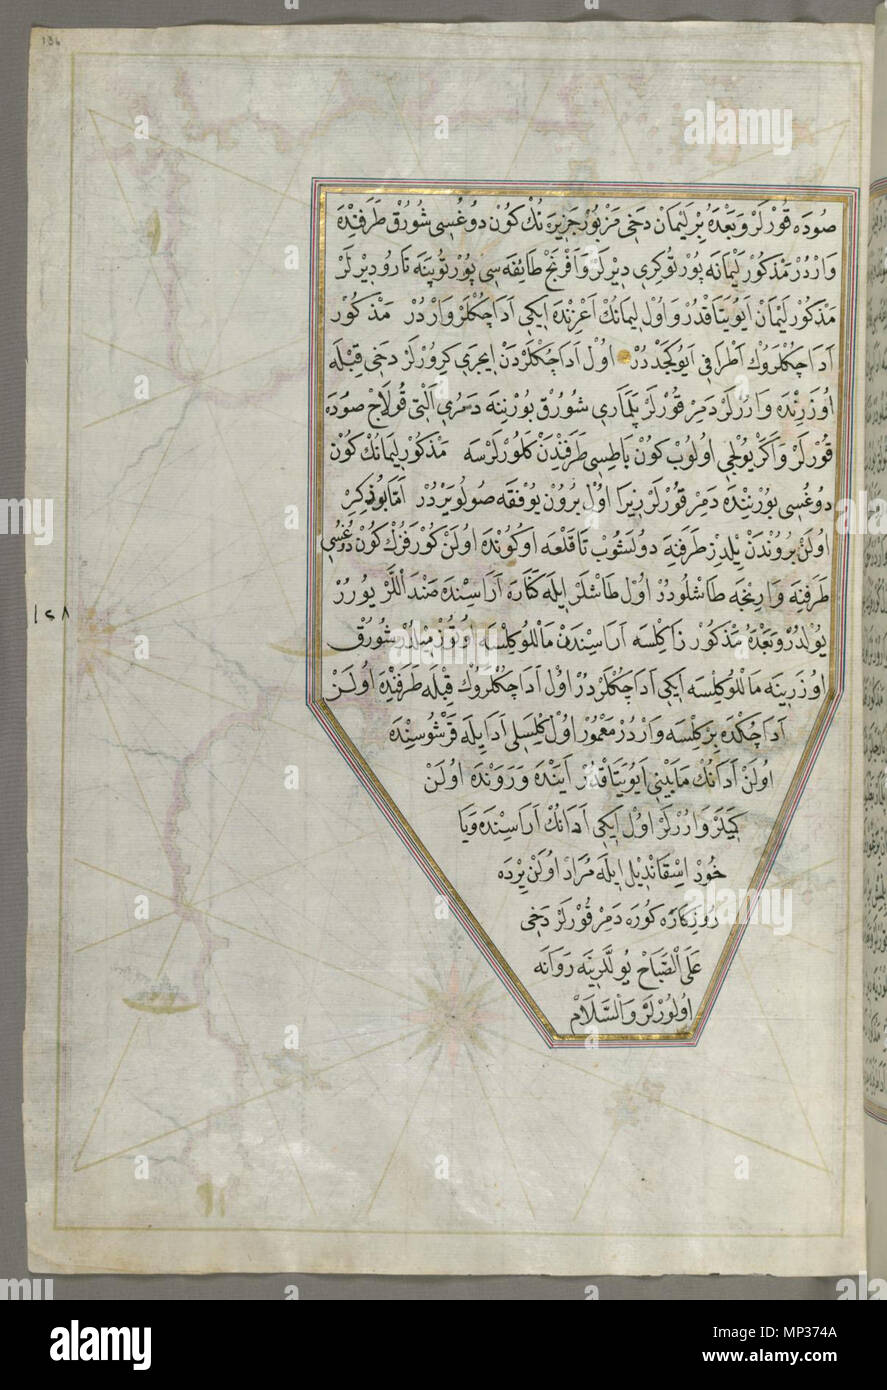 136
صُودَه قُورْلَرْ وَبَعْدَهُ بِرْ لِيمَانْ دَخِي مَزْبُورْ جَزِيرَه نُكْ كُونْ دُوغُسِي شُورُقْ طَرَفِنْدَه
وَارْدُرْ مَذْكُورْ لِيمَانَه پُورْتُوكِرِي دِيرْلَرْ وَافْرَنْجْ طَائِفَه سِي پُورْتُو پِينَه تَارُو دِيرْلَرْ
مَذْكُورْ لِيمَانْ اَيُو يَتَاقْدُرْ وَاُولْ لِيمَانِكْ اَغْزِنْدَه اِيكِي اَدَاجُكْلَرْ وَارْدُرْ مَذْكُورْ
اَدَاجُكْلَرُوكْ اَطْرَافِي اَيُو كَجِدْدُرْ اُولْ اَدَاجُكْلَرْدَنْ اِيچَرِي كِيرُورْلَرْ دَخِي قِبْلَه
اُوزَرِنْدَه وَارُرْلَرْ دَمِرْ قُورْلَرْ پَلَمَارِي شُورُقْ بُورْنِنَه دَمُرِي اَلْتِي قُولَاجْ صُودَه
قُورْلَرْ وَاَكَرْ يُولْجِي اُولُوبْ كُونْ بَاطِسِي طَرَفِنْدَنْ كَلُورْلَرْسَه مَذْكُورْ لِيمَانِكْ كُونْ
دُوغُسِي بُورْنِنْدَه دَمِرْ قُورْلَرْ زِيرَا اُولْ بُرُونْ يُوفْقَه صُولُو يَرْدُرْ اَمَّا بُو ذِكِرْ
اُولَنْ بُرُونْدَنْ يِلْدِزْ طَرَفِنَه دُولَشُوبْ تَا قَلْعَه اُوكُونْدَه اُولَنْ كُورْفَزُكْ كُونْ دُوغُسِي
طَرَفِنَه وَارِنْجَه طَاشْلُودُرْ اُولْ طَاشْلَرْ اِيلَه كَنَارَه اَرَاسِنْدَه صَنْدَاللَّرْ يُورُرْ
يُولْدُرْ وَبَعْدَهُ مَذْكُورْ زَاكْلِسَه اَرَاسِنْدَنْ مَالْلُو كِلِسَه اُوتُوزْ مِيلْدُرْ شُورُقْ
اُوزَرِينَه مَالْلُو كِلِسَه اِيكِي اَدَاجُكْلَرْدُرْ اُولْ اَدَاجُكْلَرُوكْ قِبْلَه طَرَفِنْدَه اُولَنْ
اَدَاجُكْدَه بِرْ كِلِسَه وَارْدُرْ مَعْمُورْ اُولْ كِلِسَلِي اَدَا اِيلَه قَرْشُوسِنْدَه
اُولَنْ اَدَانُكْ مَابَيْنِي اَيُو يَتَاقْدُرْ اَيَنْدَه وَرَوَنْدَه اُولَنْ
كَمِيلَرْ وَارُرْلَرْ اُولْ اِيكِي اَدَانُكْ اَرَاسِنْدَه وَيَا
خُودْ اِسْقَانْدِيلْ اِيلَه مُرَادْ اُولَنْ يَرْدَه
رُوزِكَارَه كُورَه دَمِرْ قُورْلَرْ دَخِي
عَلَى الصَّبَاحْ يُولَّرِينَه رَوَانَه
اُولُورْلَرْ وَالسَّلَامْ
١٢٨
alamy
Image ID: MP374A
www.alamy.com